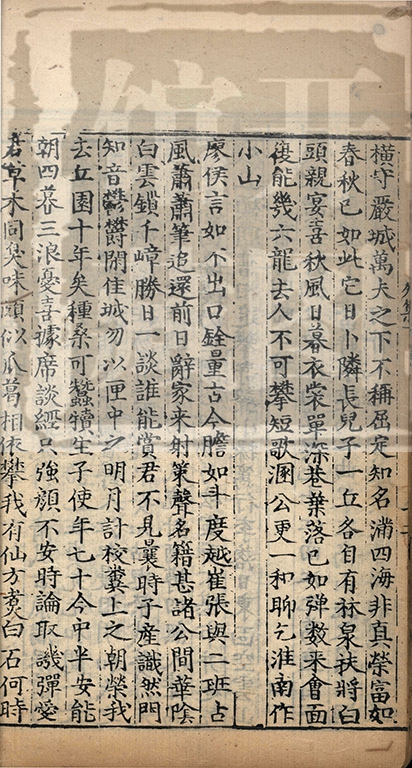 橫守嚴城萬夫之下不稱屈定知名滿四海非直榮富如
春秋已如此它日卜隣長兒子一丘各自有林泉扶將白
頭親宴喜秋風日暮衣裳單深巷葉落已如彈数来會面
復能幾六龍去人不可攀短歌溷公更一和聊乞淮南作
小山
廖侯言如不出口銓量古今膽如斗度越崔張與二班古
風蕭蕭筆追還前日辭家来射策聲名籍甚諸公間華陰
白雲鎖千嶂勝日一談誰能賞君不見曩時子産識然明
知音鬱鬱閉佳城勿以匣中之明月計校糞上之朝榮我
去丘園十年矣種桑可蠶犢生子使年七十今中半安能
朝四暮三浪憂喜據席談經只強顔不安時論取譏彈愛
君草木同臭味頗似瓜葛相依攀我有仙方煑白石何時